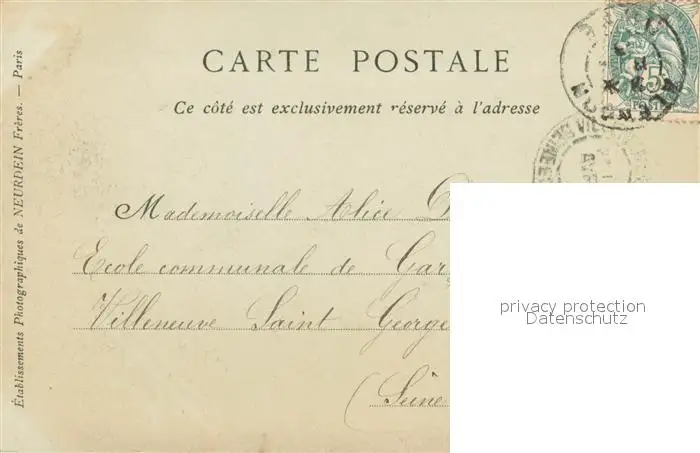 CARTE POSTALE
Ce côté est exclusivement réservé à l'adresse
Mademoiselle Alice
Ecole communale de
Villeneuve Saint George
(Seine
privacy protection
Datenschutz
Établissements Photographiques de NEURDEIN Frères. — Paris
5